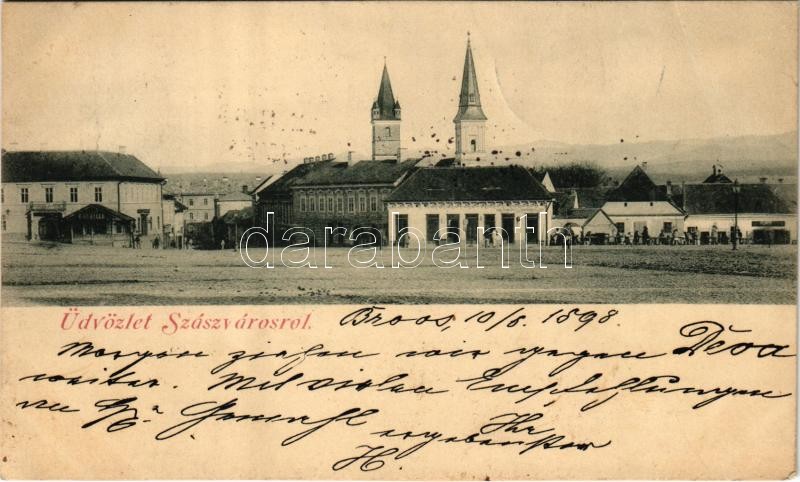 darabanth
Üdvözlet Szászvárosról.
Broos, 10/8. 1898.
Morgen ziehen wir gegen Déva
weiter. Mit vielen Empfehlungen
an Gemahl
Ihr
ergebenster
H.